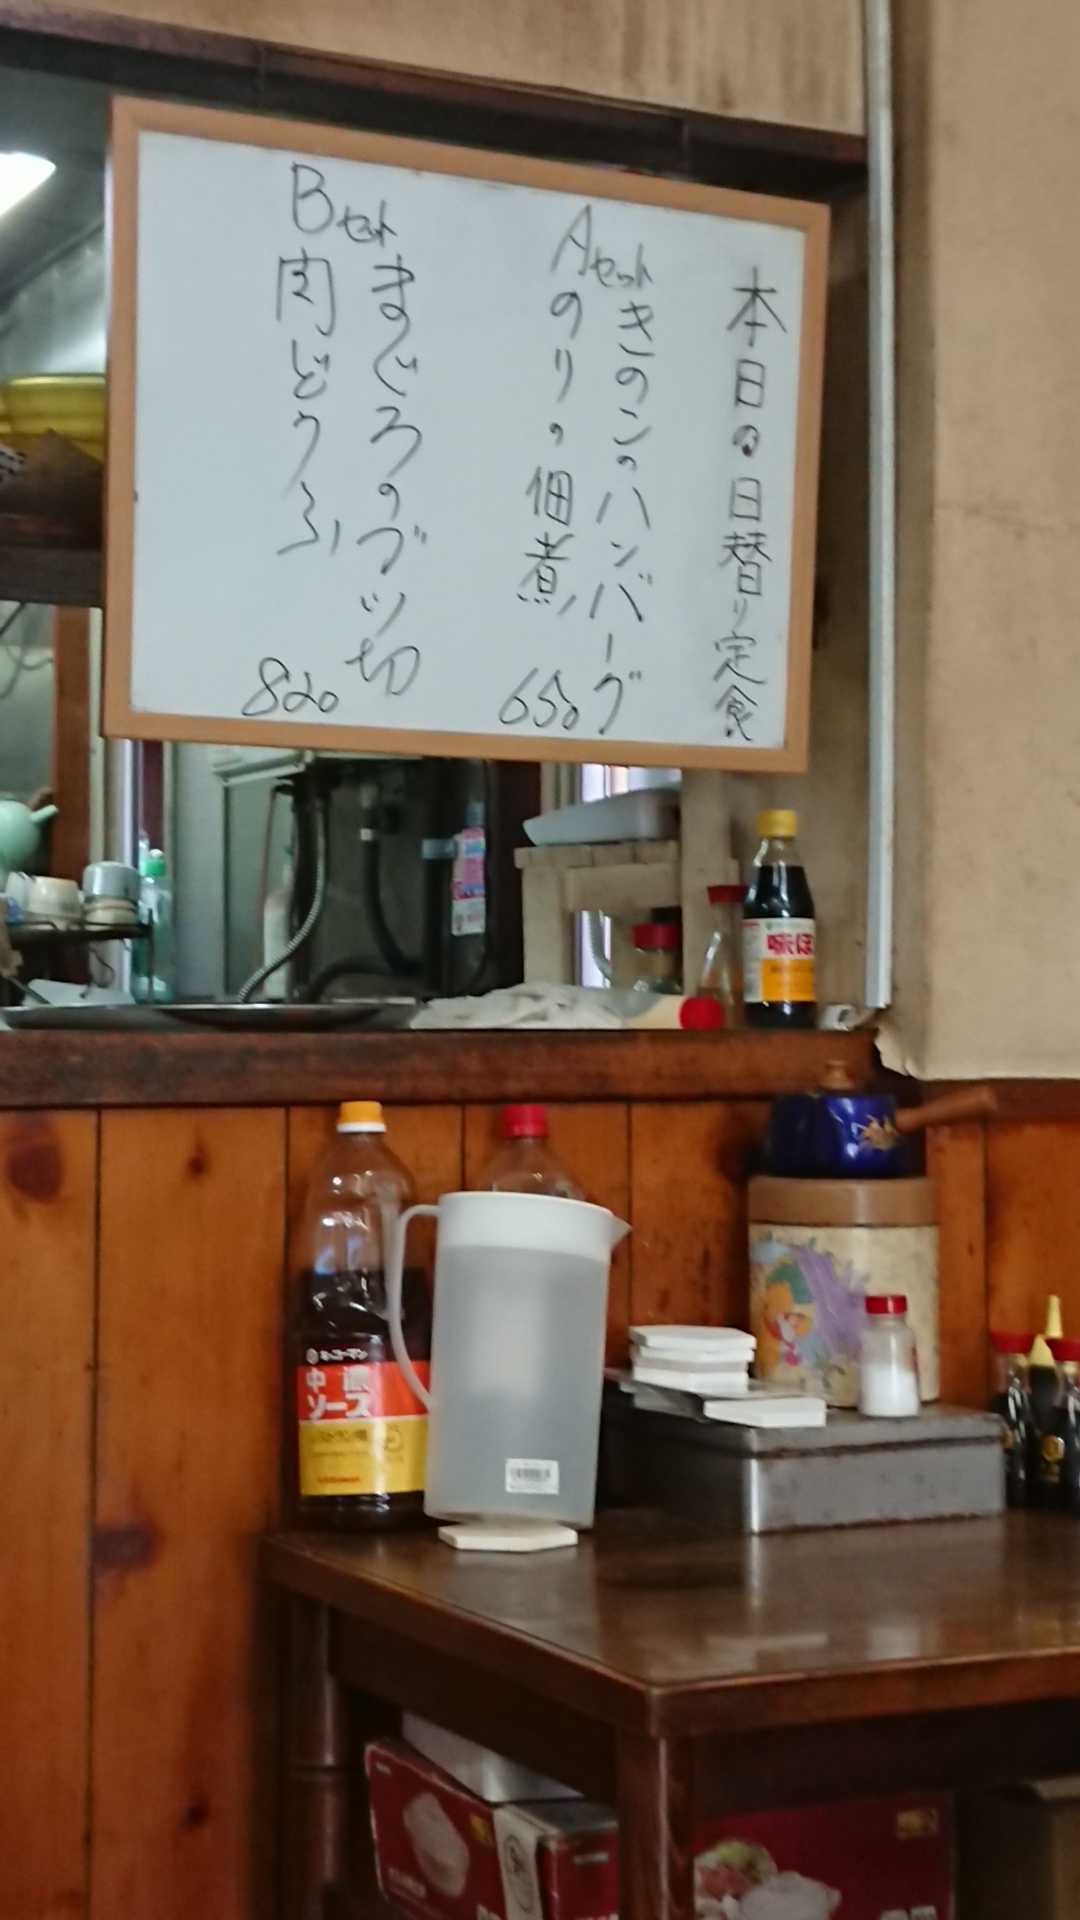 本日の日替り定食
Aセット
きのこのハンバーグ
のりの佃煮
650
Bセット
まぐろのブツ切
肉どうふ
820
味ぽ
キッコーマン
中濃
ソース